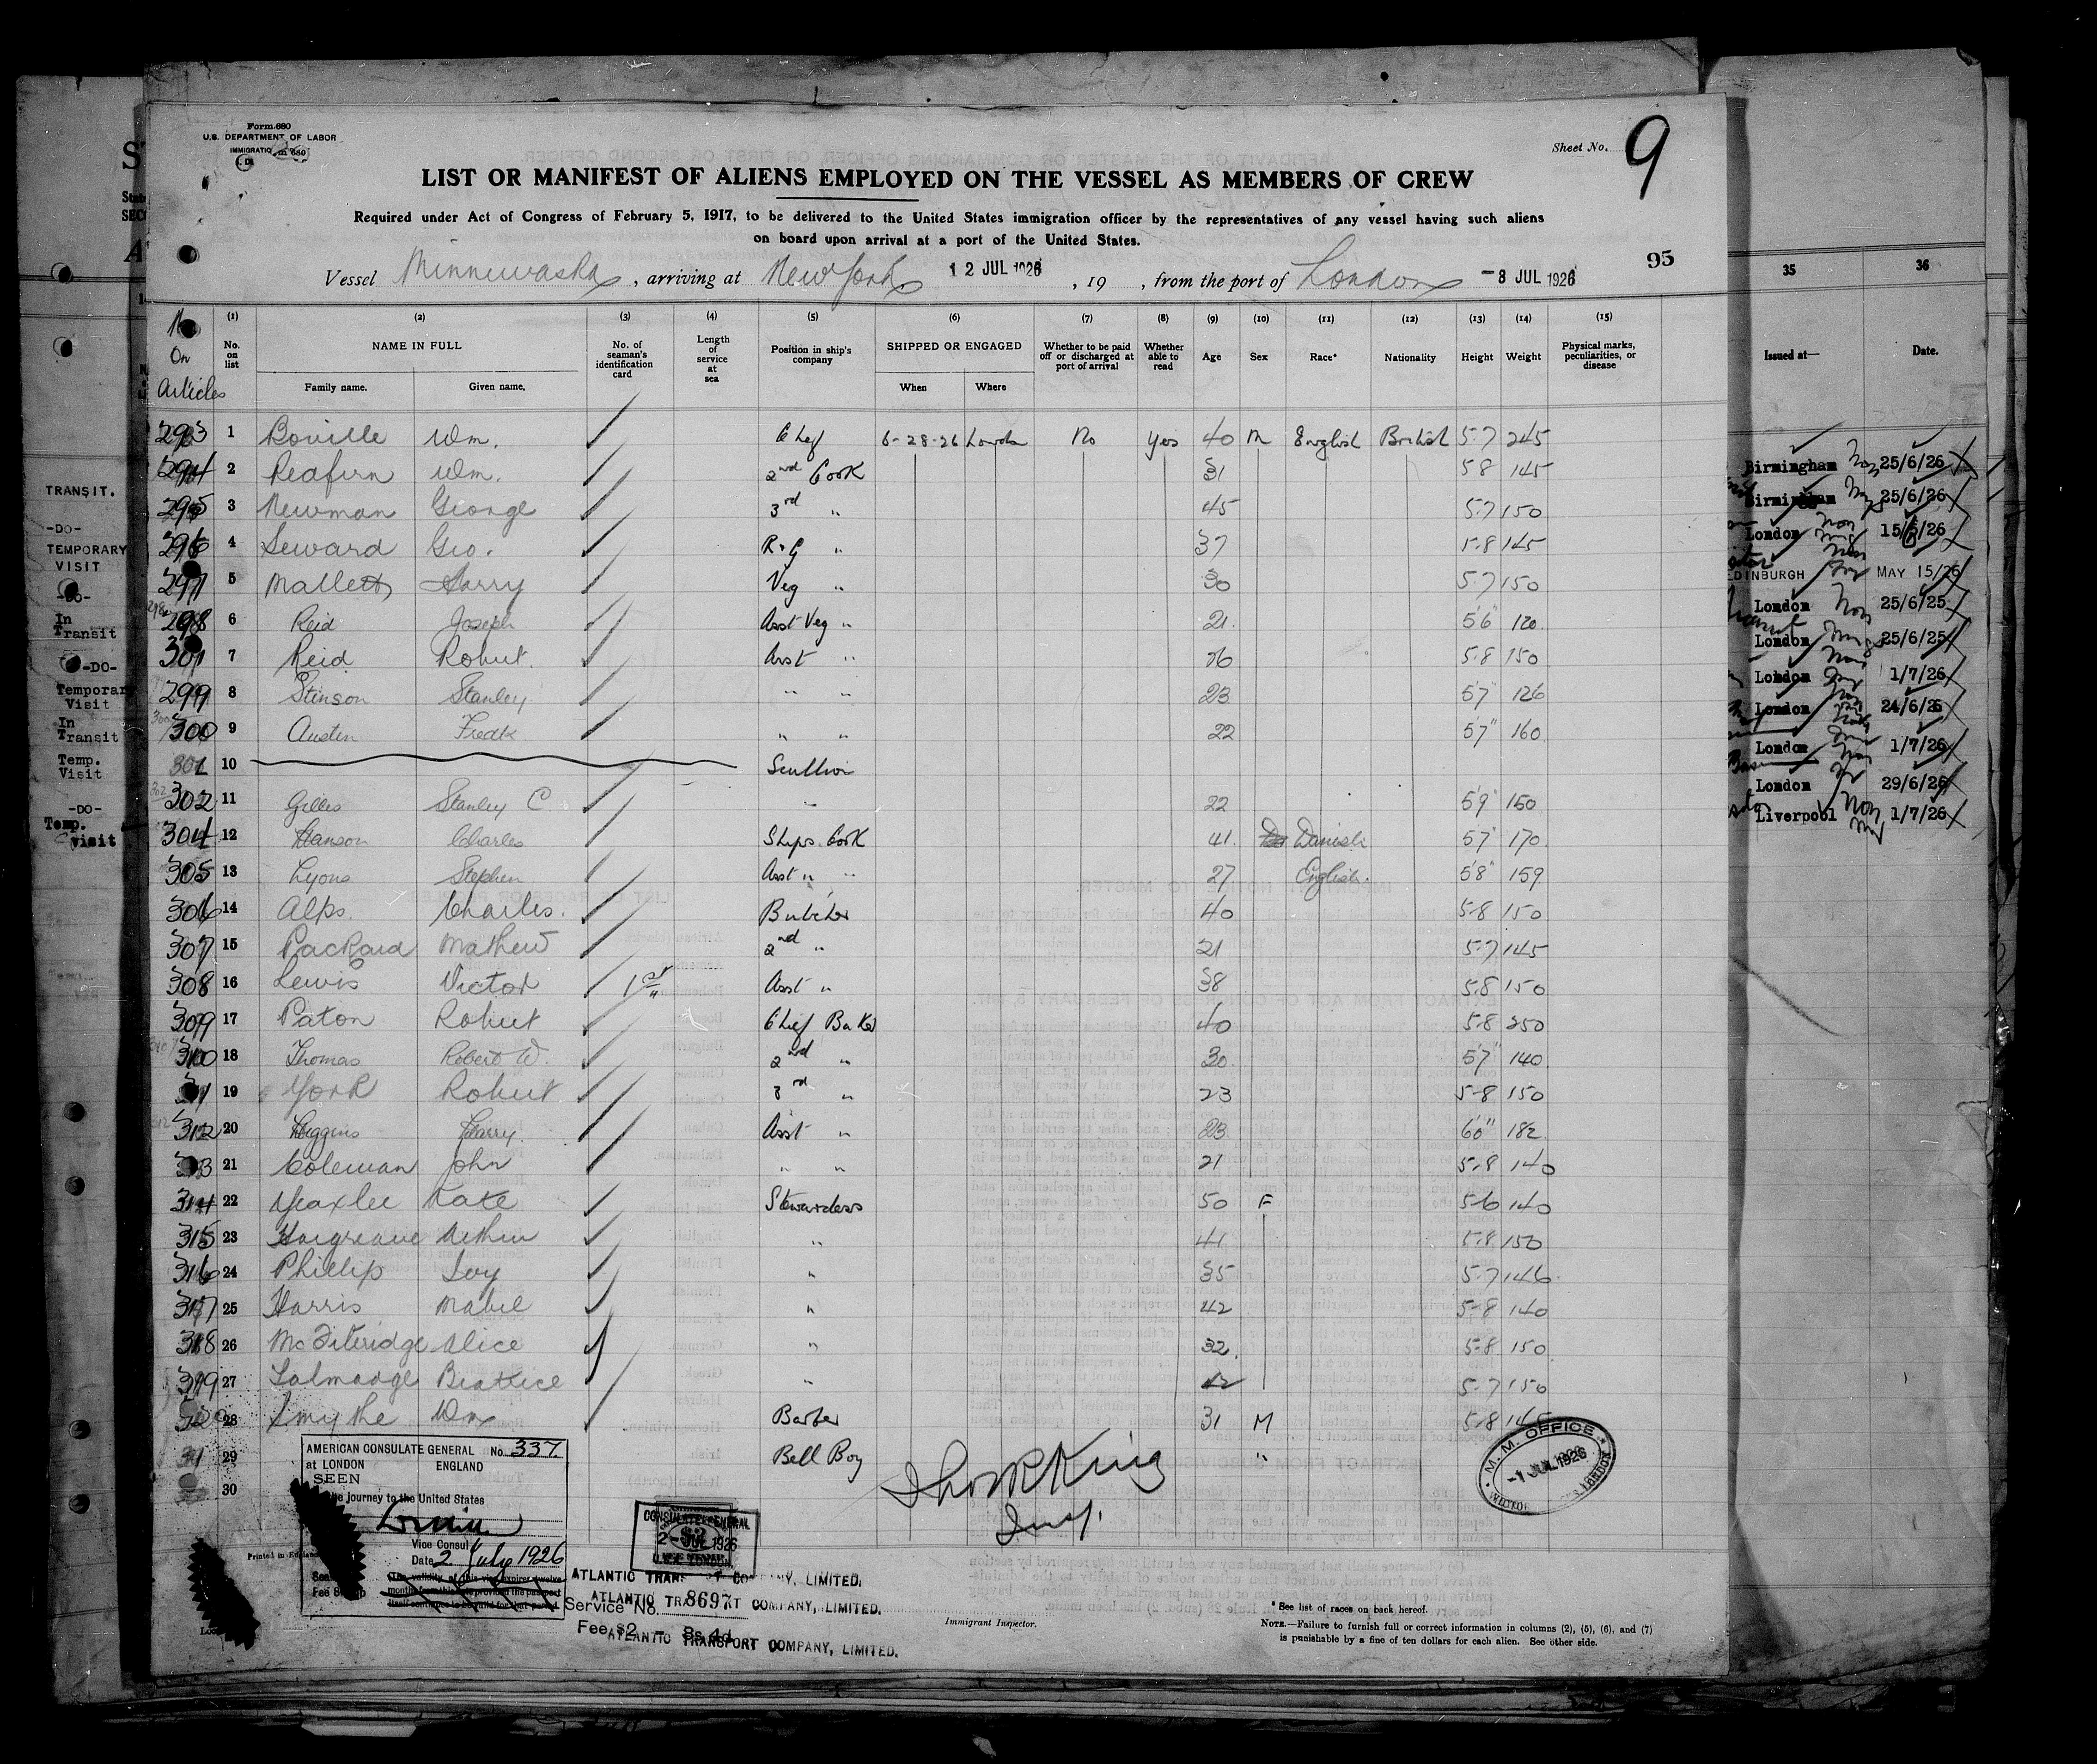 Form 680
U.S. DEPARTMENT OF LABOR
Sheet No. 9
LIST OR MANIFEST OF ALIENS EMPLOYED ON THE VESSEL AS MEMBERS OF CREW
Required under Act of Congress of February 5, 1917, to be delivered to the United States immigration officer by the representatives of any vessel having such aliens
on board upon arrival at a port of the United States.
95
Vessel Minnewaska, arriving at New York, 12 JUL 1926, 19 , from the port of London -3 JUL 1926
(1) (2) (3) (4) (5) (6) (7) (8) (9) (10) (11) (12) (13) (14) (15)
No. on list NAME IN FULL No. of seaman's identification card Length of service at sea Position in ship's company SHIPPED OR ENGAGED Whether to be paid off or discharged at port of arrival Whether able to read Age Sex Race* Nationality Height Weight Physical marks, peculiarities, or disease
On Articles Family name. Given name. When Where
293 1 Boville Wm. Chef 6-28-26 London No Yes 40 M English British 5-7 245
294 2 Wm. 2nd Cook 31 5 8 145
295 3 Newman George 3rd " 45 5-7 150
296 4 Seward Geo. " 37 5-8 145
297 5 Mallett Harry Veg " 30 5-7 150
298 6 Reid Joseph Asst Veg " 21. 5'6" 120.
301 7 Reid Robert. Asst " 5.8 150
299 8 Stinson Stanley " " 23 5'7" 126
300 9 Austin Fredk " " 22 5'7" 160
301 10 Scullion
302 11 Gilles Stanley C " 22 5'9" 150
304 12 Hanson Charles Ships Cook 41. Danish 5'7" 170.
305 13 Lyons Stephen Asst " " 27 English. 5'8" 159
306 14 Alps. Charles. Butcher 40 5-8 150
307 15 Packard Mathew 2nd " 21 5-7 145
308 16 Lewis Victor Asst " 38 5.8 150
309 17 Paton Robert Chief Baker 40 5.8 250
310 18 Thomas Robert W. 2nd " 30. 5'7" 140.
311 19 York Robert 3rd " 23 5-8 150
312 20 Higgins Harry. Asst " 23. 6'0" 182.
313 21 Coleman John " " 21 5.8 140
314 22 Yaxlee Kate Stewardess 50 F 5-6 140
315 23 Hargreave " 41 5.8 150
316 24 Phillip Ivy " 35 5-7 146
317 25 Harris Mabel " 42 5-8 140
318 26 Alice " 32. 5-8 150
319 27 Talmadge Beatrice " 42 5-7 150
320 28 Smythe Wm Barber 31 M 5-8 145
29 Bell Boy "
30
Thos R King
Insp.
AMERICAN CONSULATE GENERAL No. 337.
at LONDON ENGLAND
SEEN
journey to the United States
Vice Consul
Date 2 July 1926
CONSULATE GENERAL
2- JUL 1926
M.M. OFFICE
-1 JUL 1926
LONDON
Printed in England
ATLANTIC TRANSPORT COMPANY, LIMITED.
ATLANTIC TRANSPORT COMPANY, LIMITED.
Service No. 8697
Fee $2 - 8s. 4d
ATLANTIC TRANSPORT COMPANY, LIMITED.
Immigrant Inspector.
* See list of races on back hereof.
NOTE.—Failure to furnish full or correct information in columns (2), (5), (6), and (7)
is punishable by a fine of ten dollars for each alien. See other side.
TRANSIT.
-DO-
TEMPORARY
VISIT
-DO-
In
Transit
-DO-
Temporary
Visit
In
Transit
Temp.
Visit
-DO-
Temp.
visit
35 36
Issued at— Date.
Birmingham 25/6/26
Birmingham 25/6/26
London 15/6/26
EDINBURGH MAY 15/26
London 25/6/25
London 25/6/25
London 1/7/26
London 24/6/26
London 1/7/26
London 29/6/26
Liverpool 1/7/26